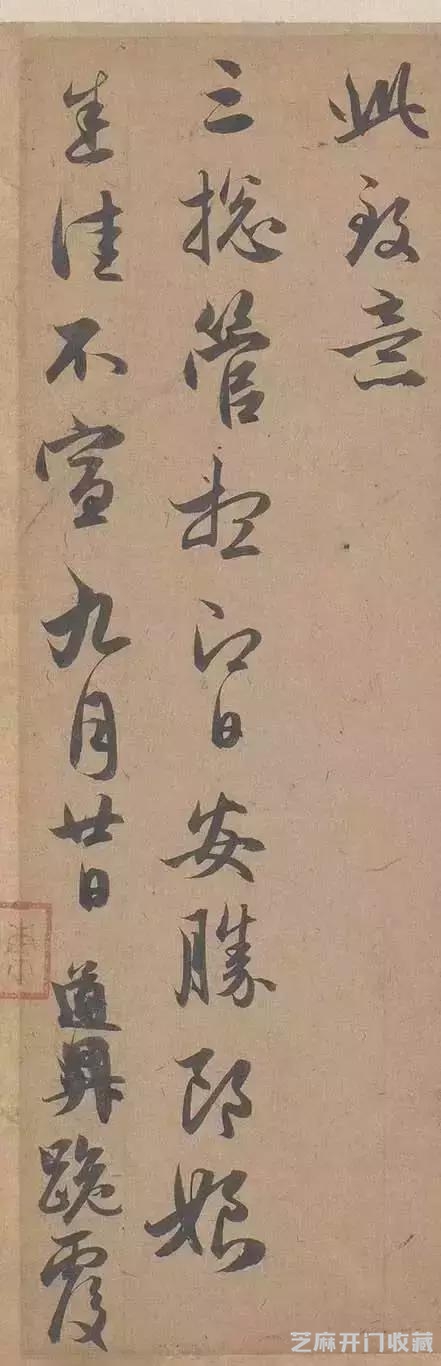 此致意
三揔管想即日安勝郎娘
悉佳不宣九月廿日道昇跪覆
芝麻开门收藏